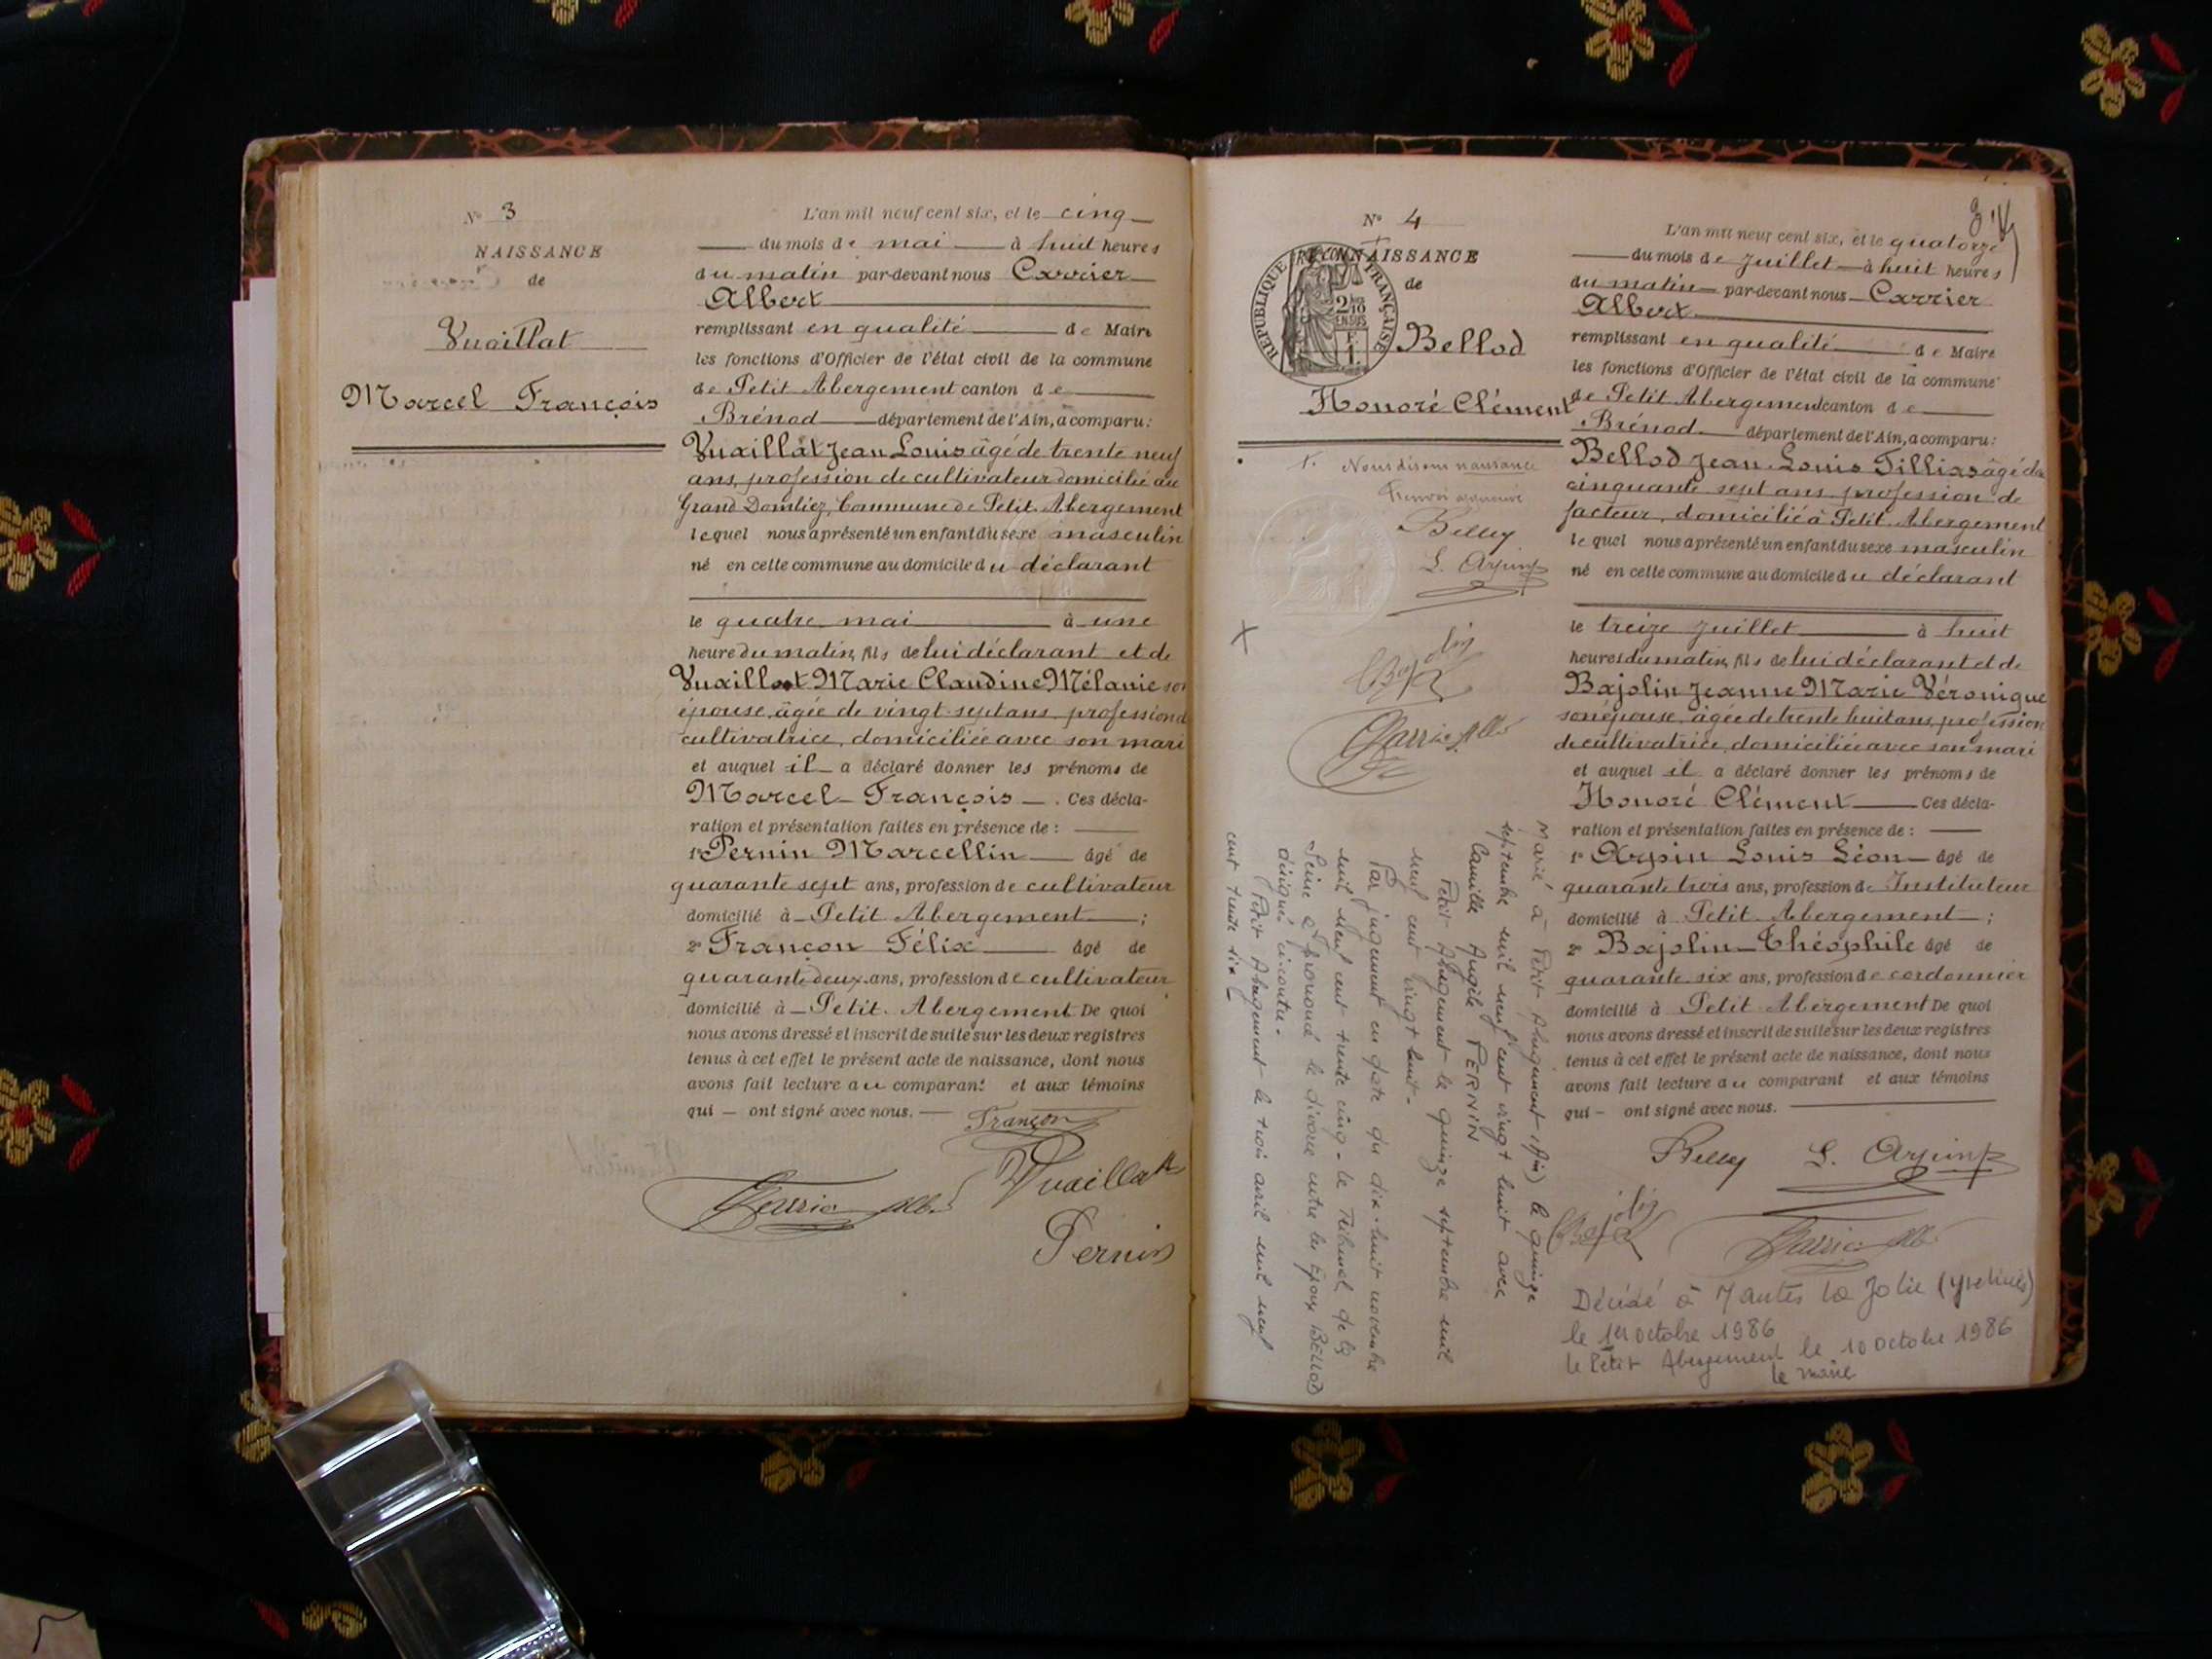 N° 3
NAISSANCE
de
Vuaillat
Marcel François
L'an mil neuf cent six, et le cinq
du mois de mai à huit heures
du matin par-devant nous Carrier
Albert
remplissant en qualité de Maire
les fonctions d'Officier de l'état civil de la commune
de Petit Abergement canton de
Brénod département de l'Ain, a comparu :
Vuaillat Jean Louis âgé de trente neuf
ans, profession de cultivateur domicilié au
Grand Domliez, Commune de Petit Abergement
lequel nous a présenté un enfant du sexe masculin
né en cette commune au domicile du déclarant
le quatre mai à une
heure du matin, fils de lui déclarant et de
Vuaillat Marie Claudine Mélanie son
épouse, âgée de vingt sept ans profession de
cultivatrice, domiciliée avec son mari
et auquel il a déclaré donner les prénoms de
Marcel François . Ces décla-
ration et présentation faites en présence de :
1° Pernin Marcellin âgé de
quarante sept ans, profession de cultivateur
domicilié à Petit Abergement ;
2° Françon Félix âgé de
quarante deux ans, profession de cultivateur
domicilié à Petit Abergement De quoi
nous avons dressé et inscrit de suite sur les deux registres
tenus à cet effet le présent acte de naissance, dont nous
avons fait lecture au comparant et aux témoins
qui ont signé avec nous.
Françon
Vuaillat
Pernin
N° 4
NAISSANCE
de
RÉPUBLIQUE FRANÇAISE
Bellod
Honoré Clément
Nous disons naissance
Renvoi approuvé
L. Arpin
Marié à Petit Abergement (Ain) le quinze
septembre mil neuf cent vingt huit avec
Camille Angèle PERNIN
Petit Abergement le quinze septembre mil
neuf cent vingt huit.
Par jugement en date du dix-huit novembre
mil neuf cent trente cinq - le Tribunal de la
Seine a prononcé le divorce entre les époux BELLOD
désignés ci-contre.
Petit Abergement le trois avril mil neuf
cent trente six
L'an mil neuf cent six, et le quatorze
du mois de juillet à huit heures
du matin par-devant nous Carrier
Albert
remplissant en qualité de Maire
les fonctions d'Officier de l'état civil de la commune
de Petit Abergement canton de
Brénod département de l'Ain, a comparu :
Bellod Jean Louis Tillias âgé de
cinquante sept ans profession de
facteur, domicilié à Petit Abergement
lequel nous a présenté un enfant du sexe masculin
né en cette commune au domicile du déclarant
le treize juillet à huit
heures du matin, fils de lui déclarant et de
Bajolin Jeanne Marie Véronique
son épouse, âgée de trente huit ans, profession
de cultivatrice, domiciliée avec son mari
et auquel il a déclaré donner les prénoms de
Honoré Clément Ces décla-
ration et présentation faites en présence de :
1° Arpin Louis Léon âgé de
quarante trois ans, profession de Instituteur
domicilié à Petit Abergement ;
2° Bajolin Théophile âgé de
quarante six ans, profession de cordonnier
domicilié à Petit Abergement De quoi
nous avons dressé et inscrit de suite sur les deux registres
tenus à cet effet le présent acte de naissance, dont nous
avons fait lecture au comparant et aux témoins
qui ont signé avec nous.
L. Arpin
Décédé à Mantes la Jolie (Yvelines)
le 1er octobre 1986
le Petit Abergement le 10 octobre 1986
le maire